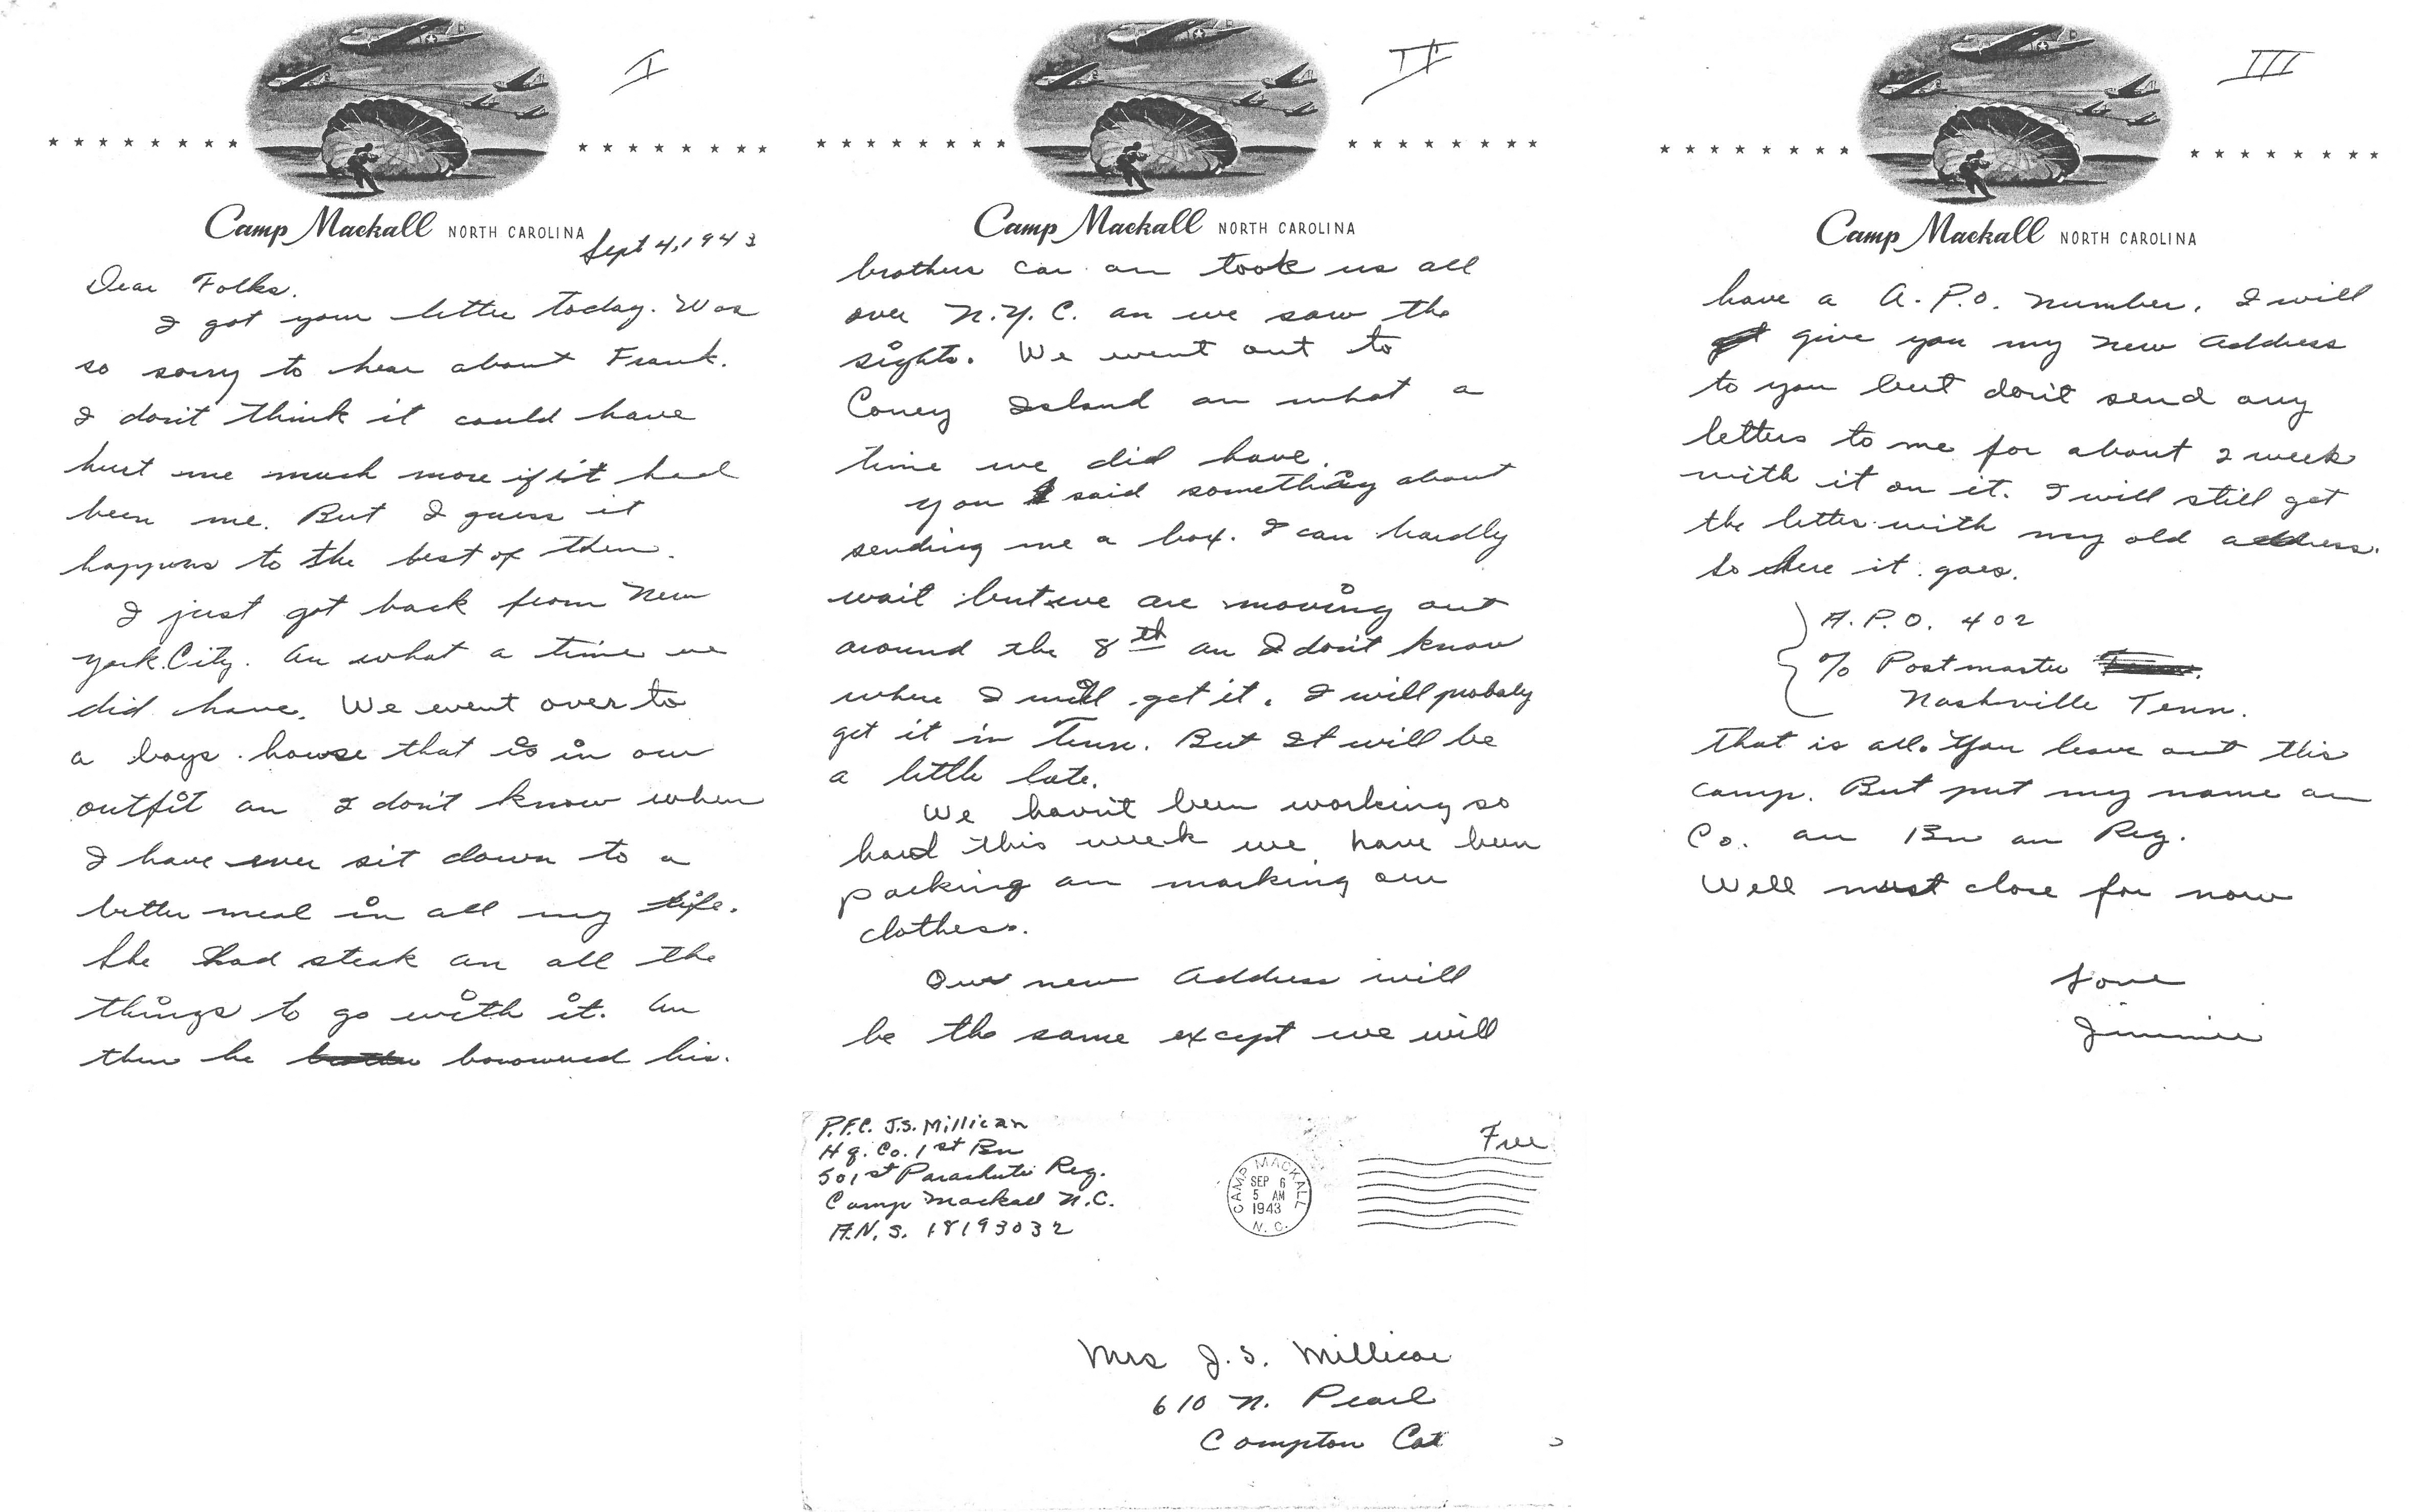 I
Camp Mackall NORTH CAROLINA
Sept 4, 1943
Dear Folks.
I got your letter today. Was
so sorry to hear about Frank.
I don't think it could have
hurt me much more if it had
been me. But I guess it
happens to the best of them.
I just got back from New
York City. An what a time we
did have. We went over to
a boys house that is in our
outfit an I don't know when
I have ever sit down to a
better meal in all my life.
She had steak an all the
things to go with it. An
then he brother borowwed his.
II
Camp Mackall NORTH CAROLINA
brothers car an took us all
over N.Y.C. an we saw the
sights. We went out to
Coney Island an what a
time we did have.
you said something about
sending me a box. I can hardly
wait but we are moving out
around the 8th an I don't know
where I will get it. I will probaly
get it in Tenn. But It will be
a little late.
We havn't been working so
hard this week we have been
packing an marking our
clothes.
Our new address will
be the same except we will
III
Camp Mackall NORTH CAROLINA
have a A.P.O. number. I will
give you my new address
to you but don't send any
letters to me for about 2 week
with it on it. I will still get
the letter with my old address.
So here it goes.
A.P.O. 402
% Postmaster
Nashville Tenn.
That is all. You leave out this
camp. But put my name an
Co. an Bn an Reg.
Well must close for now
Love
Jimmie
P.F.C. J.S. Millican
Hq. Co. 1st Bn
501st Parachute Reg.
Camp Mackall N.C.
A.N.S. 18193032
CAMP MACKALL
SEP 6
5 AM
1943
N.C.
Free
Mrs J.S. Millican
610 N. Pearl
Compton Cal